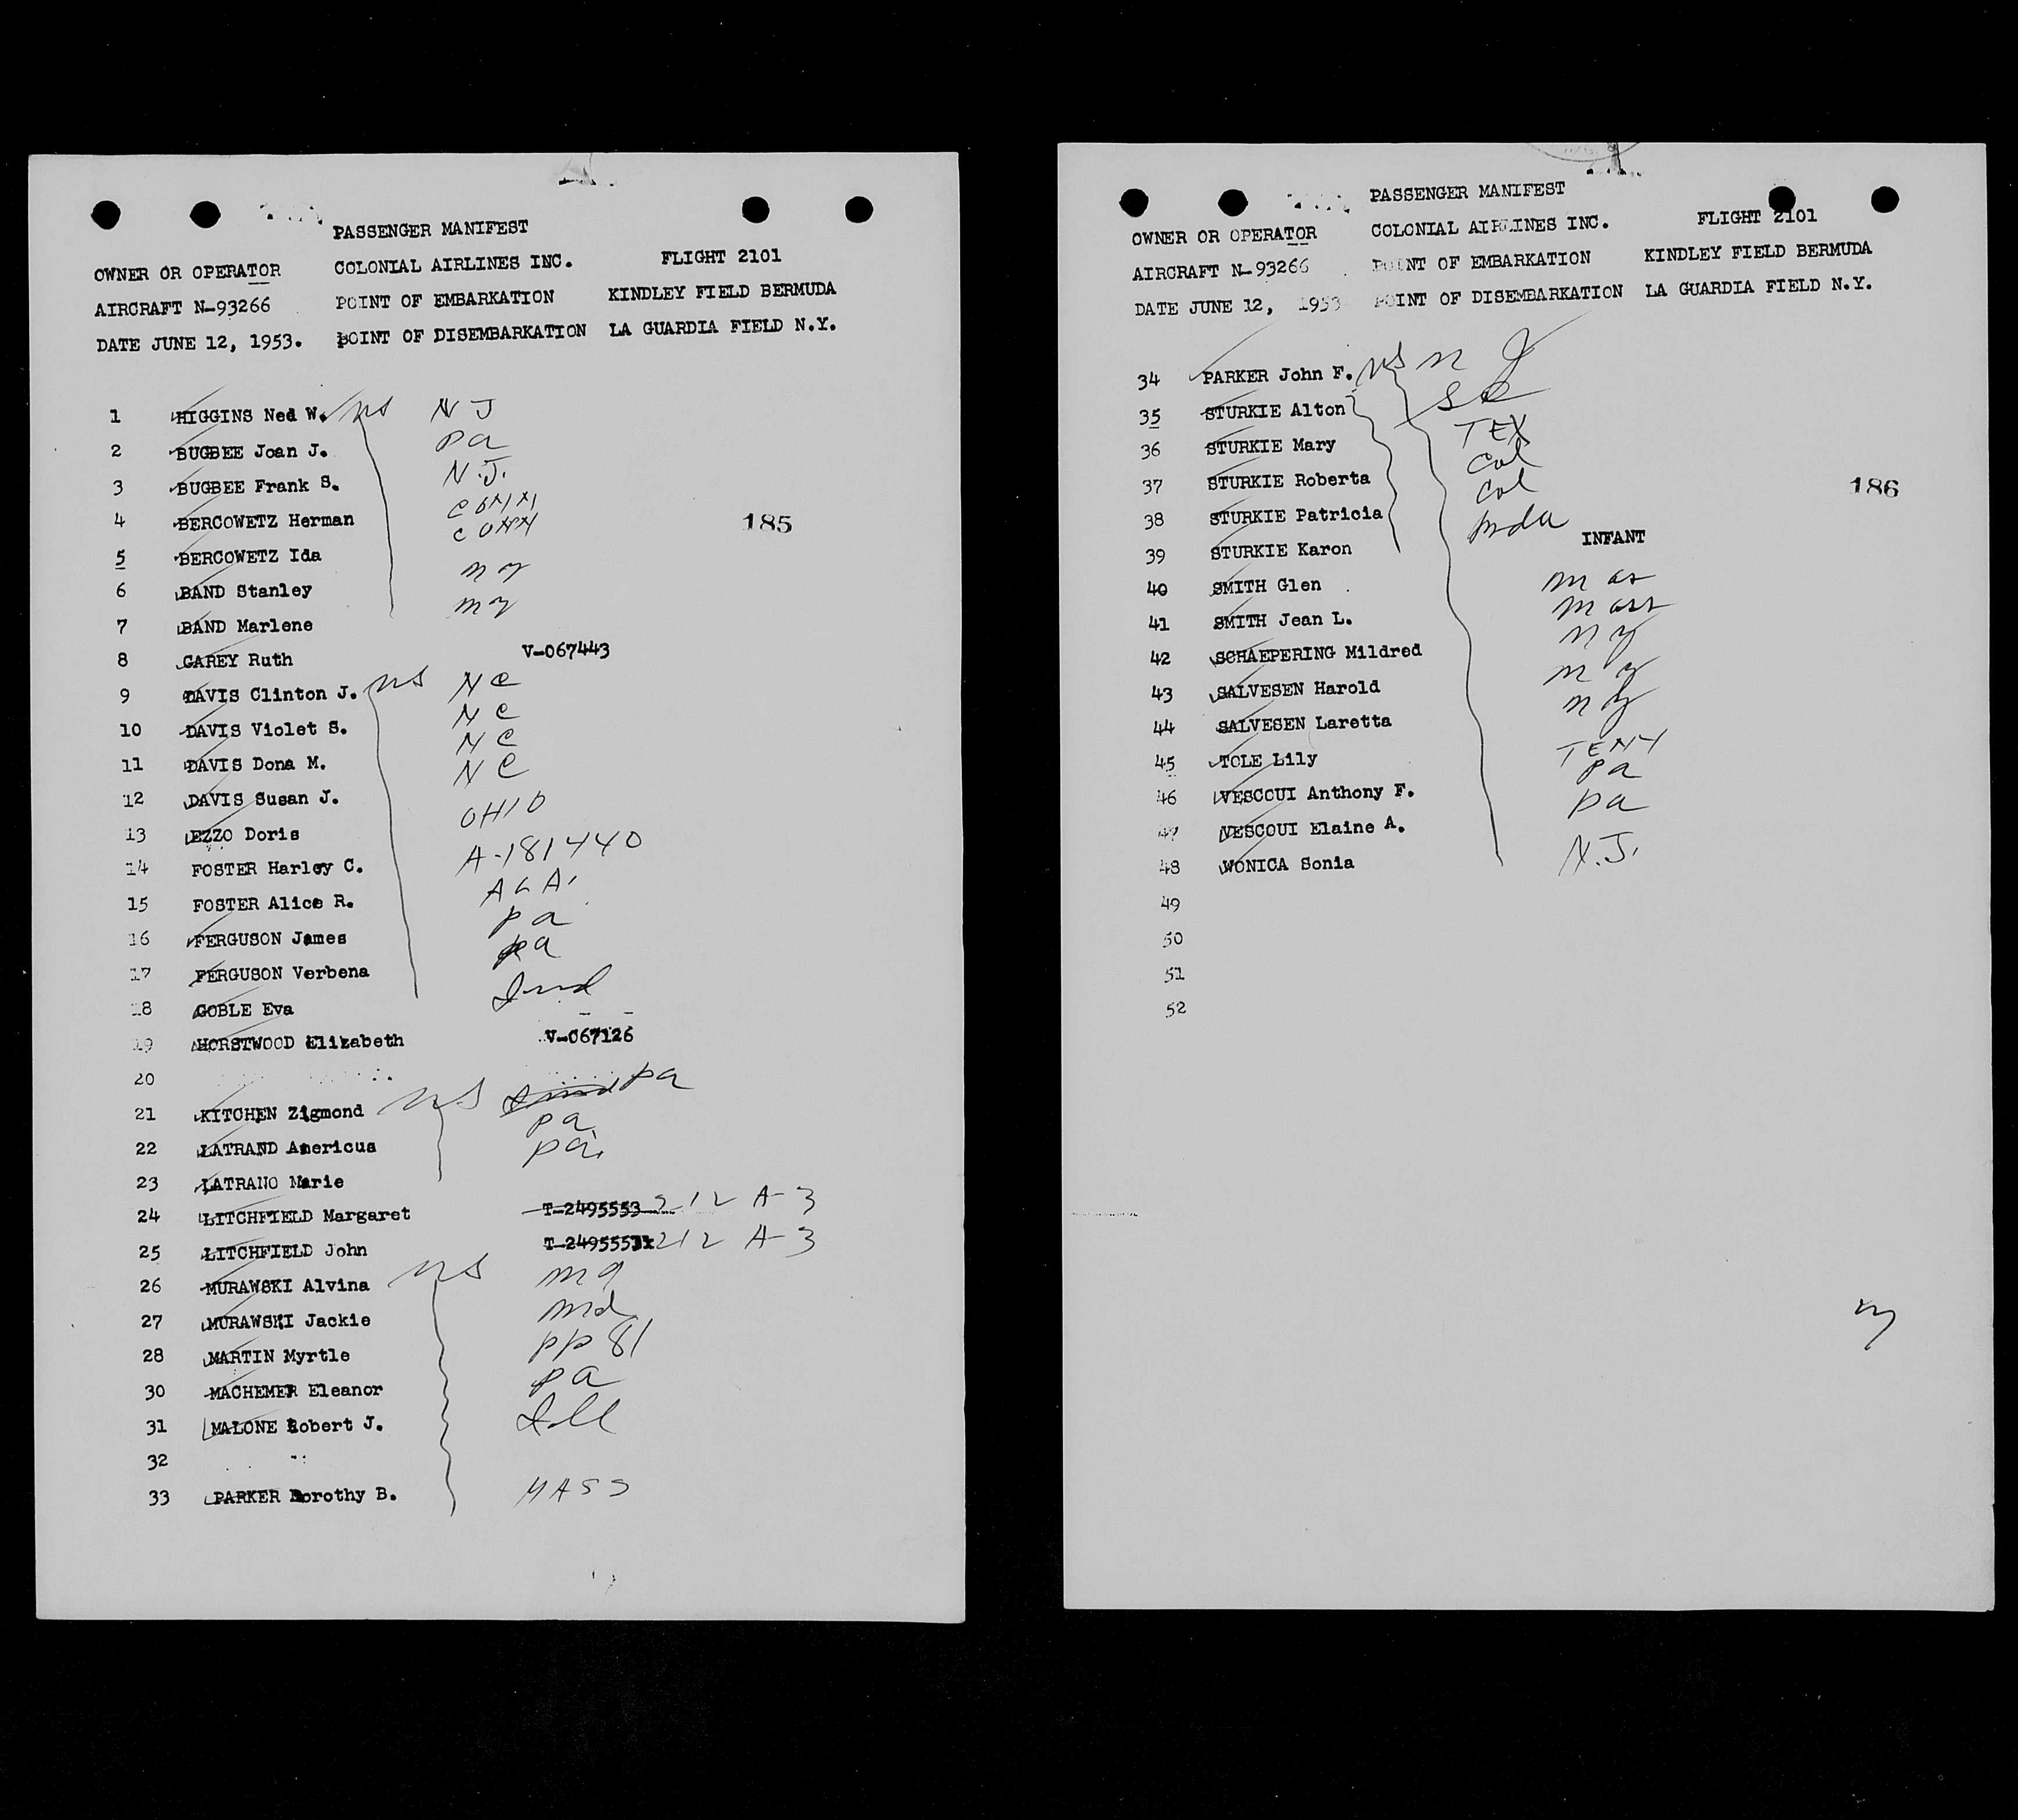 PASSENGER MANIFEST
OWNER OR OPERATOR COLONIAL AIRLINES INC. FLIGHT 2101
AIRCRAFT N-93266 POINT OF EMBARKATION KINDLEY FIELD BERMUDA
DATE JUNE 12, 1953. POINT OF DISEMBARKATION LA GUARDIA FIELD N.Y.
1 HIGGINS Ned W. US N J
2 BUGBEE Joan J. Pa
3 BUGBEE Frank S. N.J.
4 BERCOWETZ Herman CONN
185
5 BERCOWETZ Ida CONN
6 BAND Stanley n y
7 BAND Marlene n y
8 GAREY Ruth V-067443
9 DAVIS Clinton J. US N C
10 DAVIS Violet S. N C
11 DAVIS Dona M. N C
12 DAVIS Susan J. N C
13 EZZO Doris OHIO
14 FOSTER Harley C. A-181440
15 FOSTER Alice R. ALA.
16 FERGUSON James Pa
17 FERGUSON Verbena Pa
18 GOBLE Eva Ind
19 HORSTWOOD Elizabeth V-067126
20
21 KITCHEN Zigmond US Ind Pa
22 LATRAND Americus Pa
23 LATRANO Marie Pa.
24 LITCHFIELD Margaret T-2495553 212 A-3
25 LITCHFIELD John 212 A-3
26 MURAWSKI Alvina US
27 MURAWSKI Jackie Md
28 MARTIN Myrtle PP 81
30 MACHEMER Eleanor Pa
31 MALONE Robert J. Ill
32
33 PARKER Dorothy B. MASS
PASSENGER MANIFEST
OWNER OR OPERATOR COLONIAL AIRLINES INC. FLIGHT 2101
AIRCRAFT N-93266 POINT OF EMBARKATION KINDLEY FIELD BERMUDA
DATE JUNE 12, 1953 POINT OF DISEMBARKATION LA GUARDIA FIELD N.Y.
34 PARKER John F. US n J
35 STURKIE Alton SC
36 STURKIE Mary TEX
37 STURKIE Roberta Col
186
38 STURKIE Patricia Col
39 STURKIE Karon INFANT
40 SMITH Glen mas
41 SMITH Jean L. mass
42 SCHAEPERING Mildred n y
43 SALVESEN Harold n y
44 SALVESEN Laretta n y
45 TOLE Lily TENN
46 VESCOUI Anthony F. Pa
47 VESCOUI Elaine A. Pa
48 WONICA Sonia N.J.
49
50
51
52